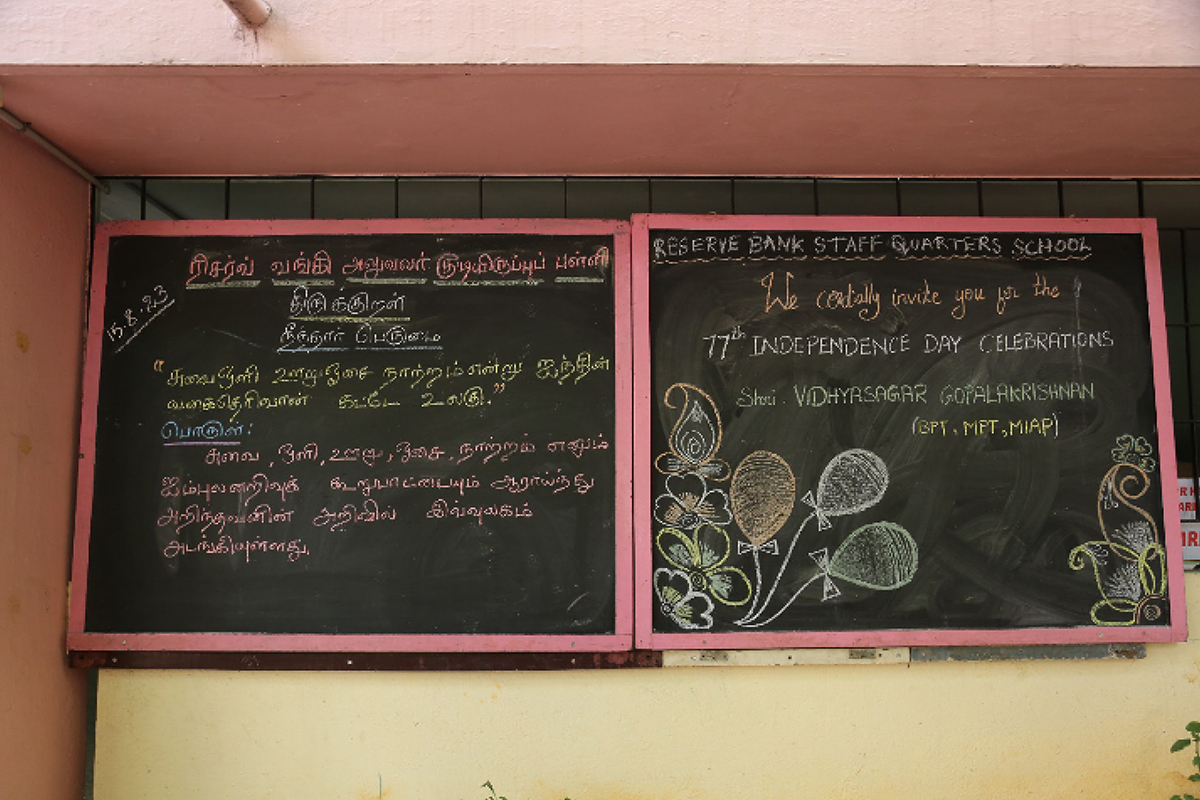 ரிசர்வ் வங்கி அலுவலர் குடியிருப்புப் பள்ளி
15.8.23
திருக்குறள்
நீத்தார் பெருமை
"சுவைஒளி ஊறுஓசை நாற்றம்என்று ஐந்தின்
வகைதெரிவான் கட்டே உலகு."
பொருள்:
சுவை, ஒளி, ஊறு, ஓசை, நாற்றம் எனும்
ஐம்புலனறிவுக் கூறுபாட்டையும் ஆராய்ந்து
அறிந்தவனின் அறிவில் இவ்வுலகம்
அடங்கியுள்ளது.
RESERVE BANK STAFF QUARTERS SCHOOL
We cordially invite you for the
77th INDEPENDENCE DAY CELEBRATIONS
Shri. VIDHYASAGAR GOPALAKRISHNAN
(BPT, MPT, MIAP)